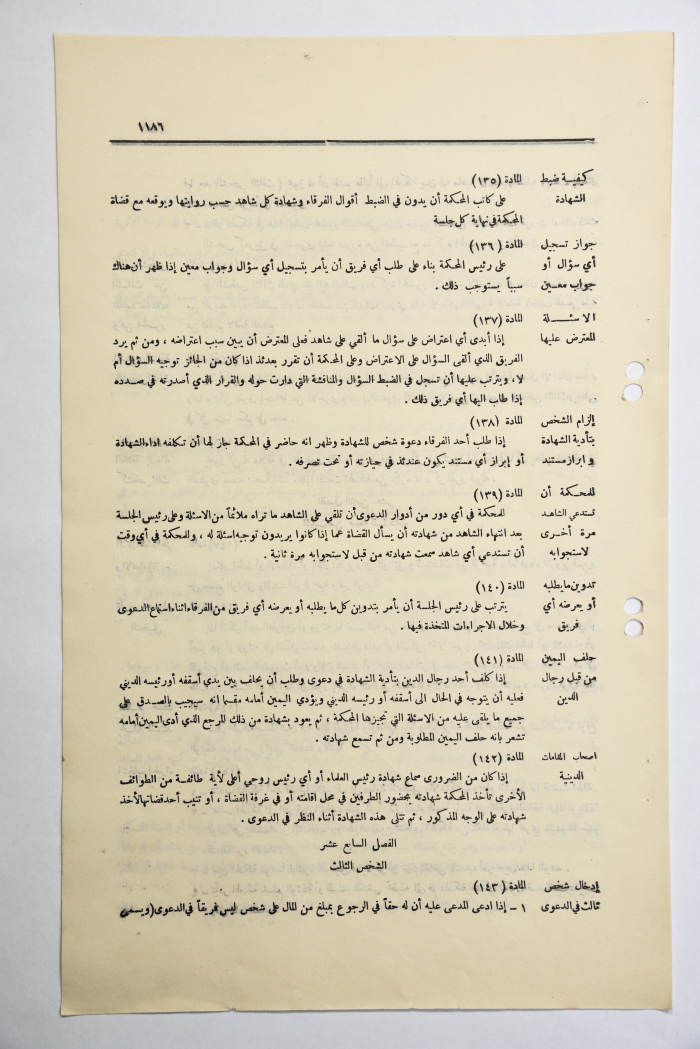 ١١٨٦
كيفيـة ضبط المادة (١٣٥)
الشهادة على كاتب المحكمة أن يدون في الضبط أقوال الفرقاء وشهادة كل شاهد حسب روايتها ويوقعه مع قضاة
المحكمة في نهاية كل جلسة
جواز تسجيل المادة (١٣٦)
أي سؤال أو على رئيس المحكمة بناء على طلب أي فريق أن يأمر بتسجيل أي سؤال وجواب معين إذا ظهر أن هناك
جواب معـين سبباً يستوجب ذلك .
الاسئـــلة المادة (١٣٧)
المعترض عليها إذا أبدى أي اعتراض على سؤال ما ألقي على شاهد فعلى المعترض أن يبين سبب اعتراضه ، ومن ثم يرد
الفريق الذي ألقى السؤال على الاعتراض وعلى المحكمة أن تقرر بعدئذ اذا كان من الجائز توجيه السؤال أم
لا ، ويترتب عليها أن تسجل في الضبط السؤال والمناقشة التي دارت حوله والقرار الذي أصدرته في صـدده
إذا طلب اليها أي فريق ذلك .
إلزام الشخص المادة (١٣٨)
بتأدية الشهادة إذا طلب أحد الفرقاء دعوة شخص للشهادة وظهر انه حاضر في المحكمة جاز لها أن تكلفه اداء الشهادة
وابراز مستند أو إبراز أي مستند يكون عندئذ في حيازته أو تحت تصرفه .
للمحكمة أن المادة (١٣٩)
تستدعي الشاهد للمحكمة في أي دور من أدوار الدعوى أن تلقي على الشاهد ما تراه ملائماً من الاسئلة وعلى رئيس الجلسة
مرة أخـرى بعد انتهاء الشاهد من شهادته أن يسأل القضاة عما إذا كانوا يريدون توجيه اسئلة له ، وللمحكمة في أي وقت
لاستجوابه أن تستدعي أي شاهد سمعت شهادته من قبل لاستجوابه مرة ثانية .
تدوين ما يطلبه المادة (١٤٠)
أو يعرضه أي يترتب على رئيس الجلسة أن يأمر بتدوين كل ما يطلبه أو يعرضه أي فريق من الفرقاء اثناء استماع الدعوى
فريق وخلال الاجراءات المتخذة فيها .
حلف اليمين المادة (١٤١)
من قبل رجال إذا كلف أحد رجال الدين بتأدية الشهادة في دعوى وطلب أن يحلف بين يدي أسقفه أو رئيسه الديني
الدين فعليه أن يتوجه في الحال الى أسقفه أو رئيسه الديني ويؤدي اليمين أمامه مقسما انه سيجيب بالصـدق على
جميع ما يلقى عليه من الاسئلة التي تجيزها المحكمة ، ثم يعود بشهادة من ذلك المرجع الذي أدى اليمين أمامه
تشعر بانه حلف اليمين المطلوبة ومن ثم تسمع شهادته .
اصحاب المقامات المادة (١٤٢)
الدينية إذا كان من الضروري سماع شهادة رئيس العلماء أو أي رئيس روحي أعلى لأية طائفـة من الطوائف
الأخرى تأخذ المحكمة شهادته بحضور الطرفين في محل اقامته أو في غرفة القضاة ، أو تنيب أحد قضاتها لأخذ
شهادته على الوجه المذكور ، ثم تتلى هذه الشهادة أثناء النظر في الدعوى .
الفصل السابع عشر
الشخص الثالث
إدخال شخص المادة (١٤٣)
ثالث في الدعوى ١ ــ إذا ادعى المدعى عليه أن له حقاً في الرجوع بمبلغ من المال على شخص ليس فريقاً في الدعوى (ويسمى